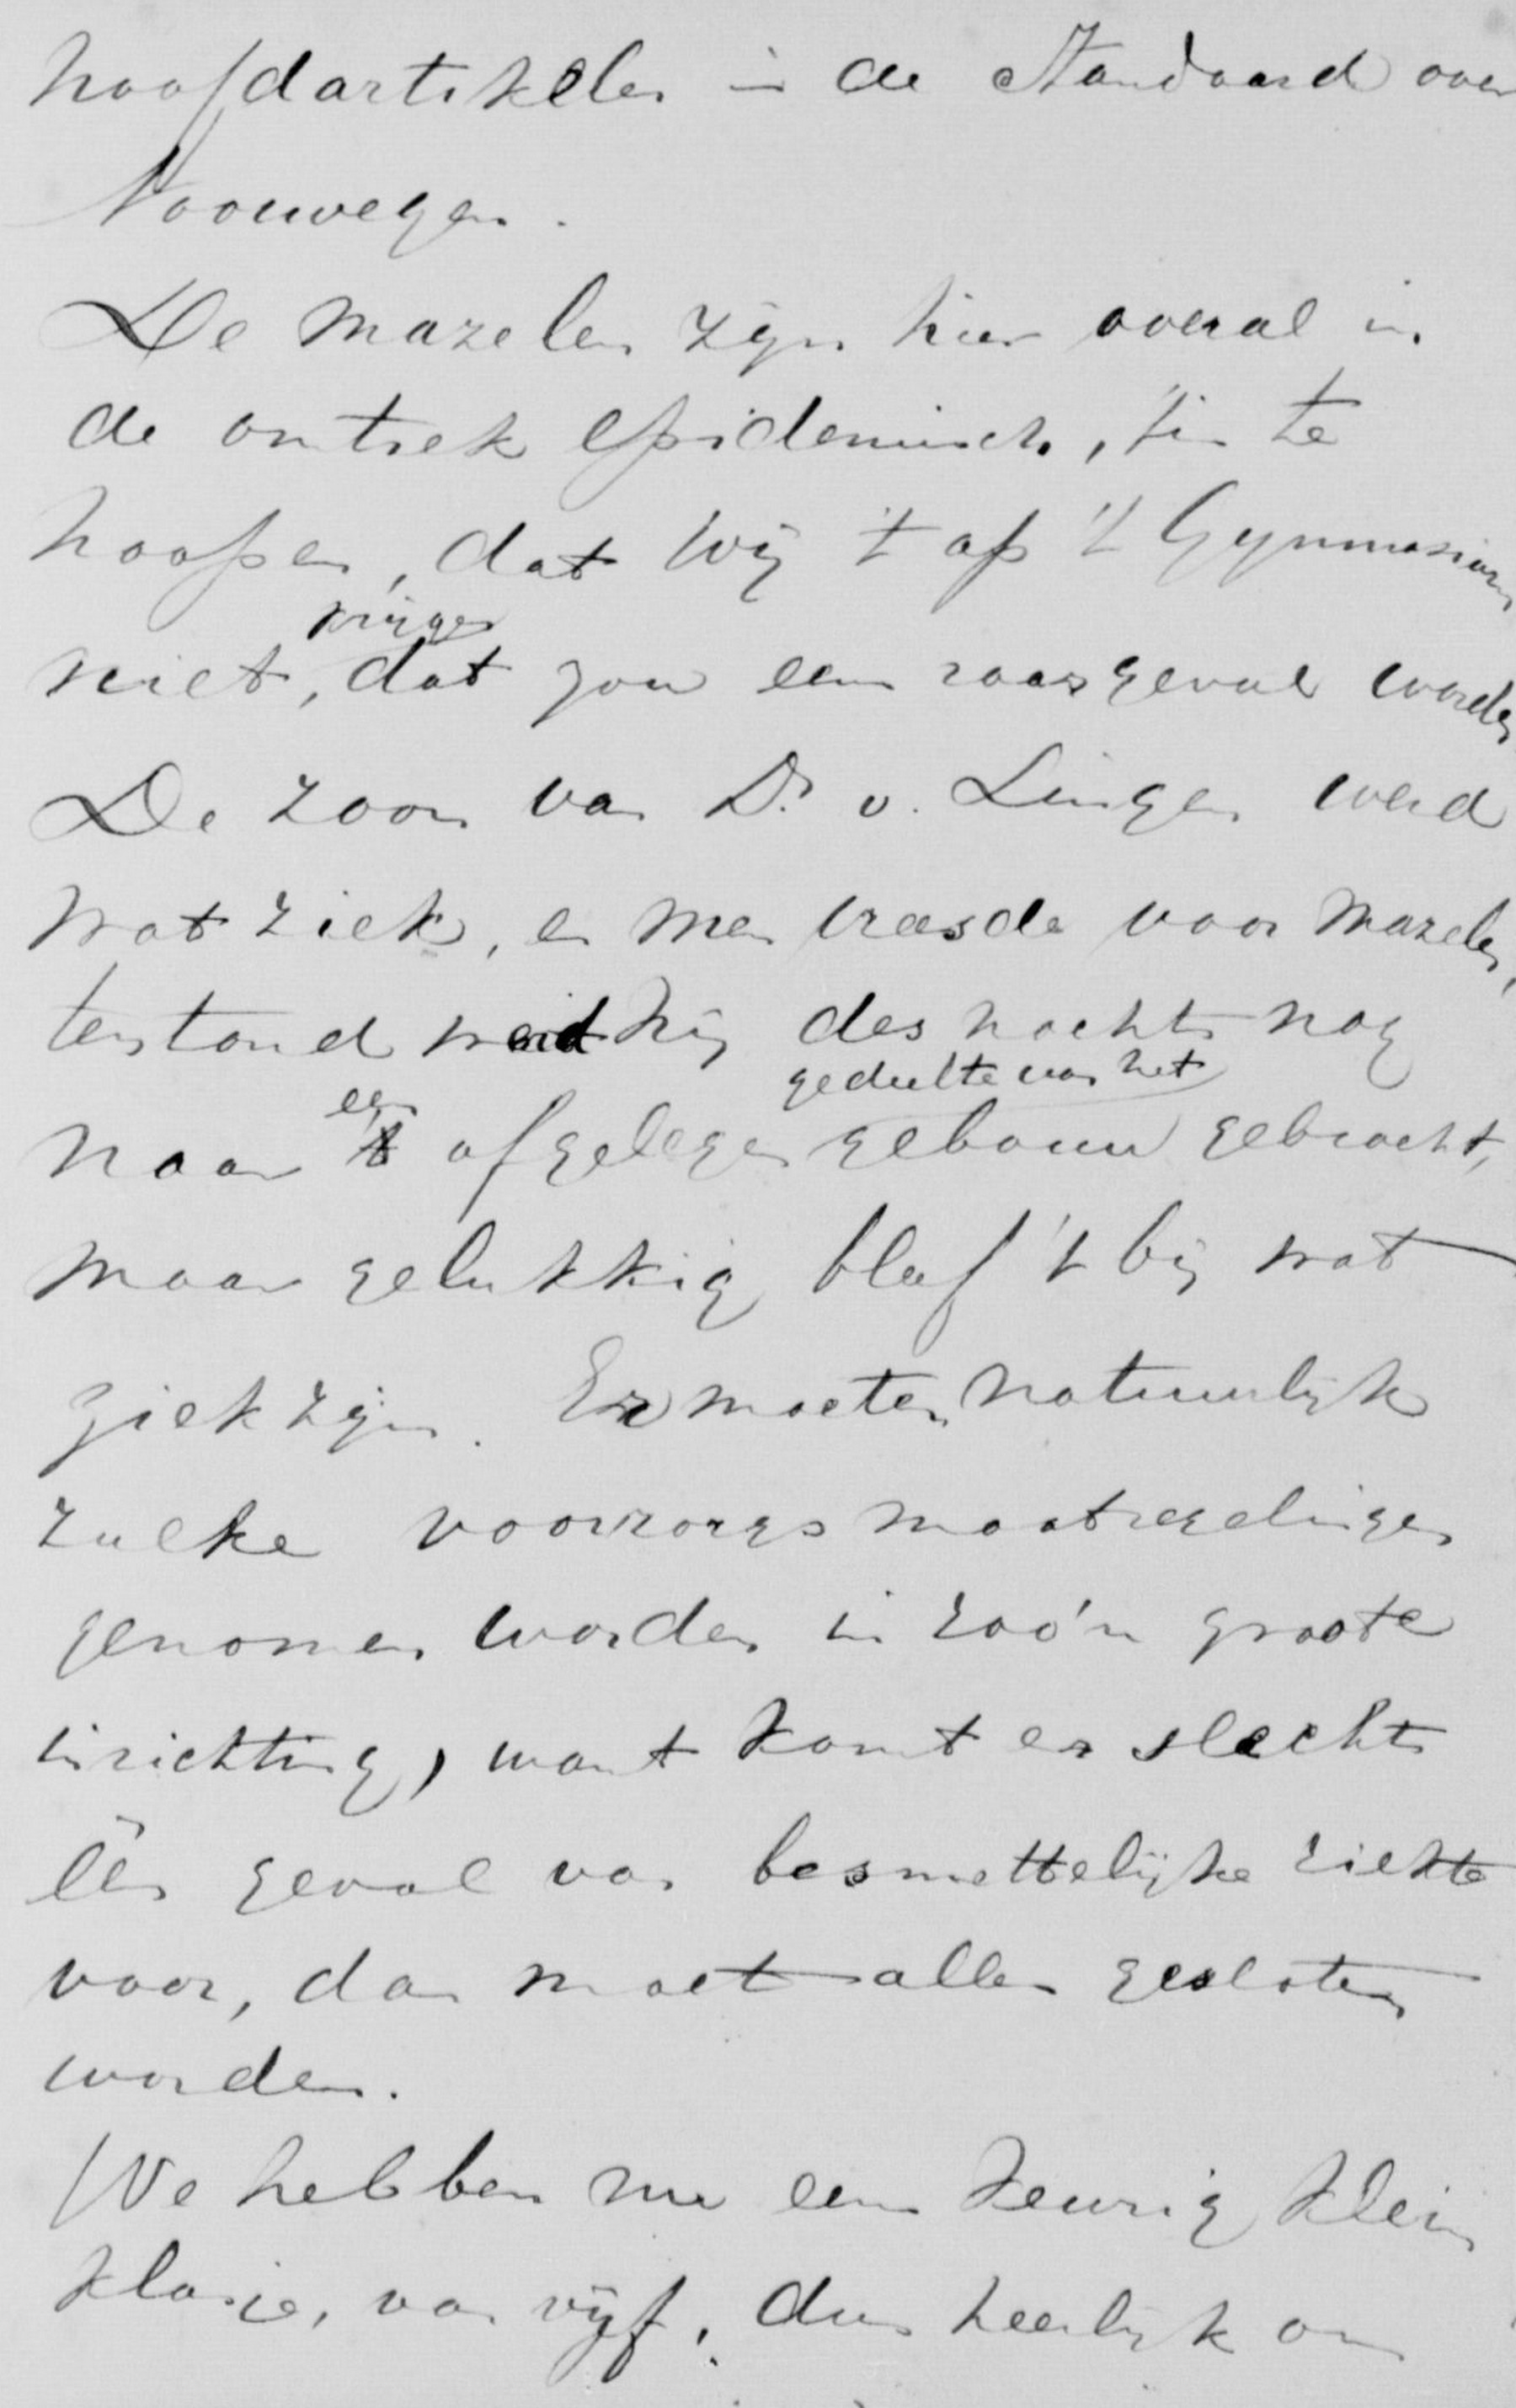 hoofdartikelen in de Standaard over
Noorwegen.
De mazelen zijn hier overal in
de omtrek epidemisch, 't is te
hoopen, dat wij 't op 't Gymnasium
krijgen
niet, dat zou een raar geval worden
De zoon van Dr. v. Lingen werd
wat ziek, en men vreesde voor mazelen,
terstond werd hij des nachts nog
een gedeelte van het
naar 't afgelegen gebouw gebracht,
maar gelukkig bleef 't bij wat
ziek zijn. Er moeten natuurlijk
zulke voorzorgsmaatregelingen
genomen worden in zoo'n groote
inrichting, want komt er slechts
één geval van besmettelijke ziekte
voor, dan moet alles gesloten
worden.
We hebben nu een keurig klein
klasje, van vijf, dus heerlijk om